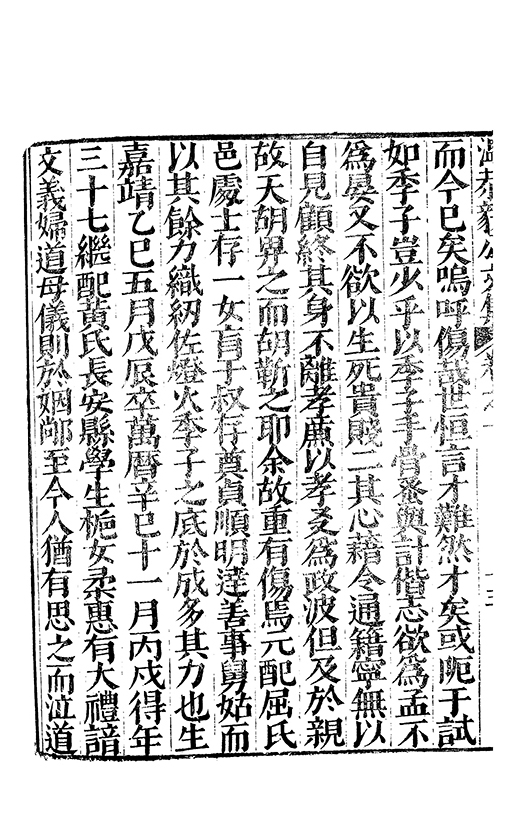 溫恭毅公文集
而今已矣嗚呼傷哉世恒言才難然才矣或阨于試
如季子豈少乎以季子丰骨蚤與計偕忘欲為孟不
為晏又不欲以生死貴賤二其心藉令通籍寧無以
自見顧終其身不離孝廉以孝爻為政波但及於親
故天胡畀之而胡靳之耶余故重有傷焉元配屈氏
邑處士存一女盲于叔仔蓂貞順明達善事舅姑而
以其餘力織紉佐燈火季子之底於成多其力也生
嘉靖乙巳五月戊辰卒萬曆辛巳十一月丙戌得年
三十七繼配黃氏長安縣學生栀女柔惠有大禮諳
文義婦道母儀則於姻鄰至今人猶有思之而泣道